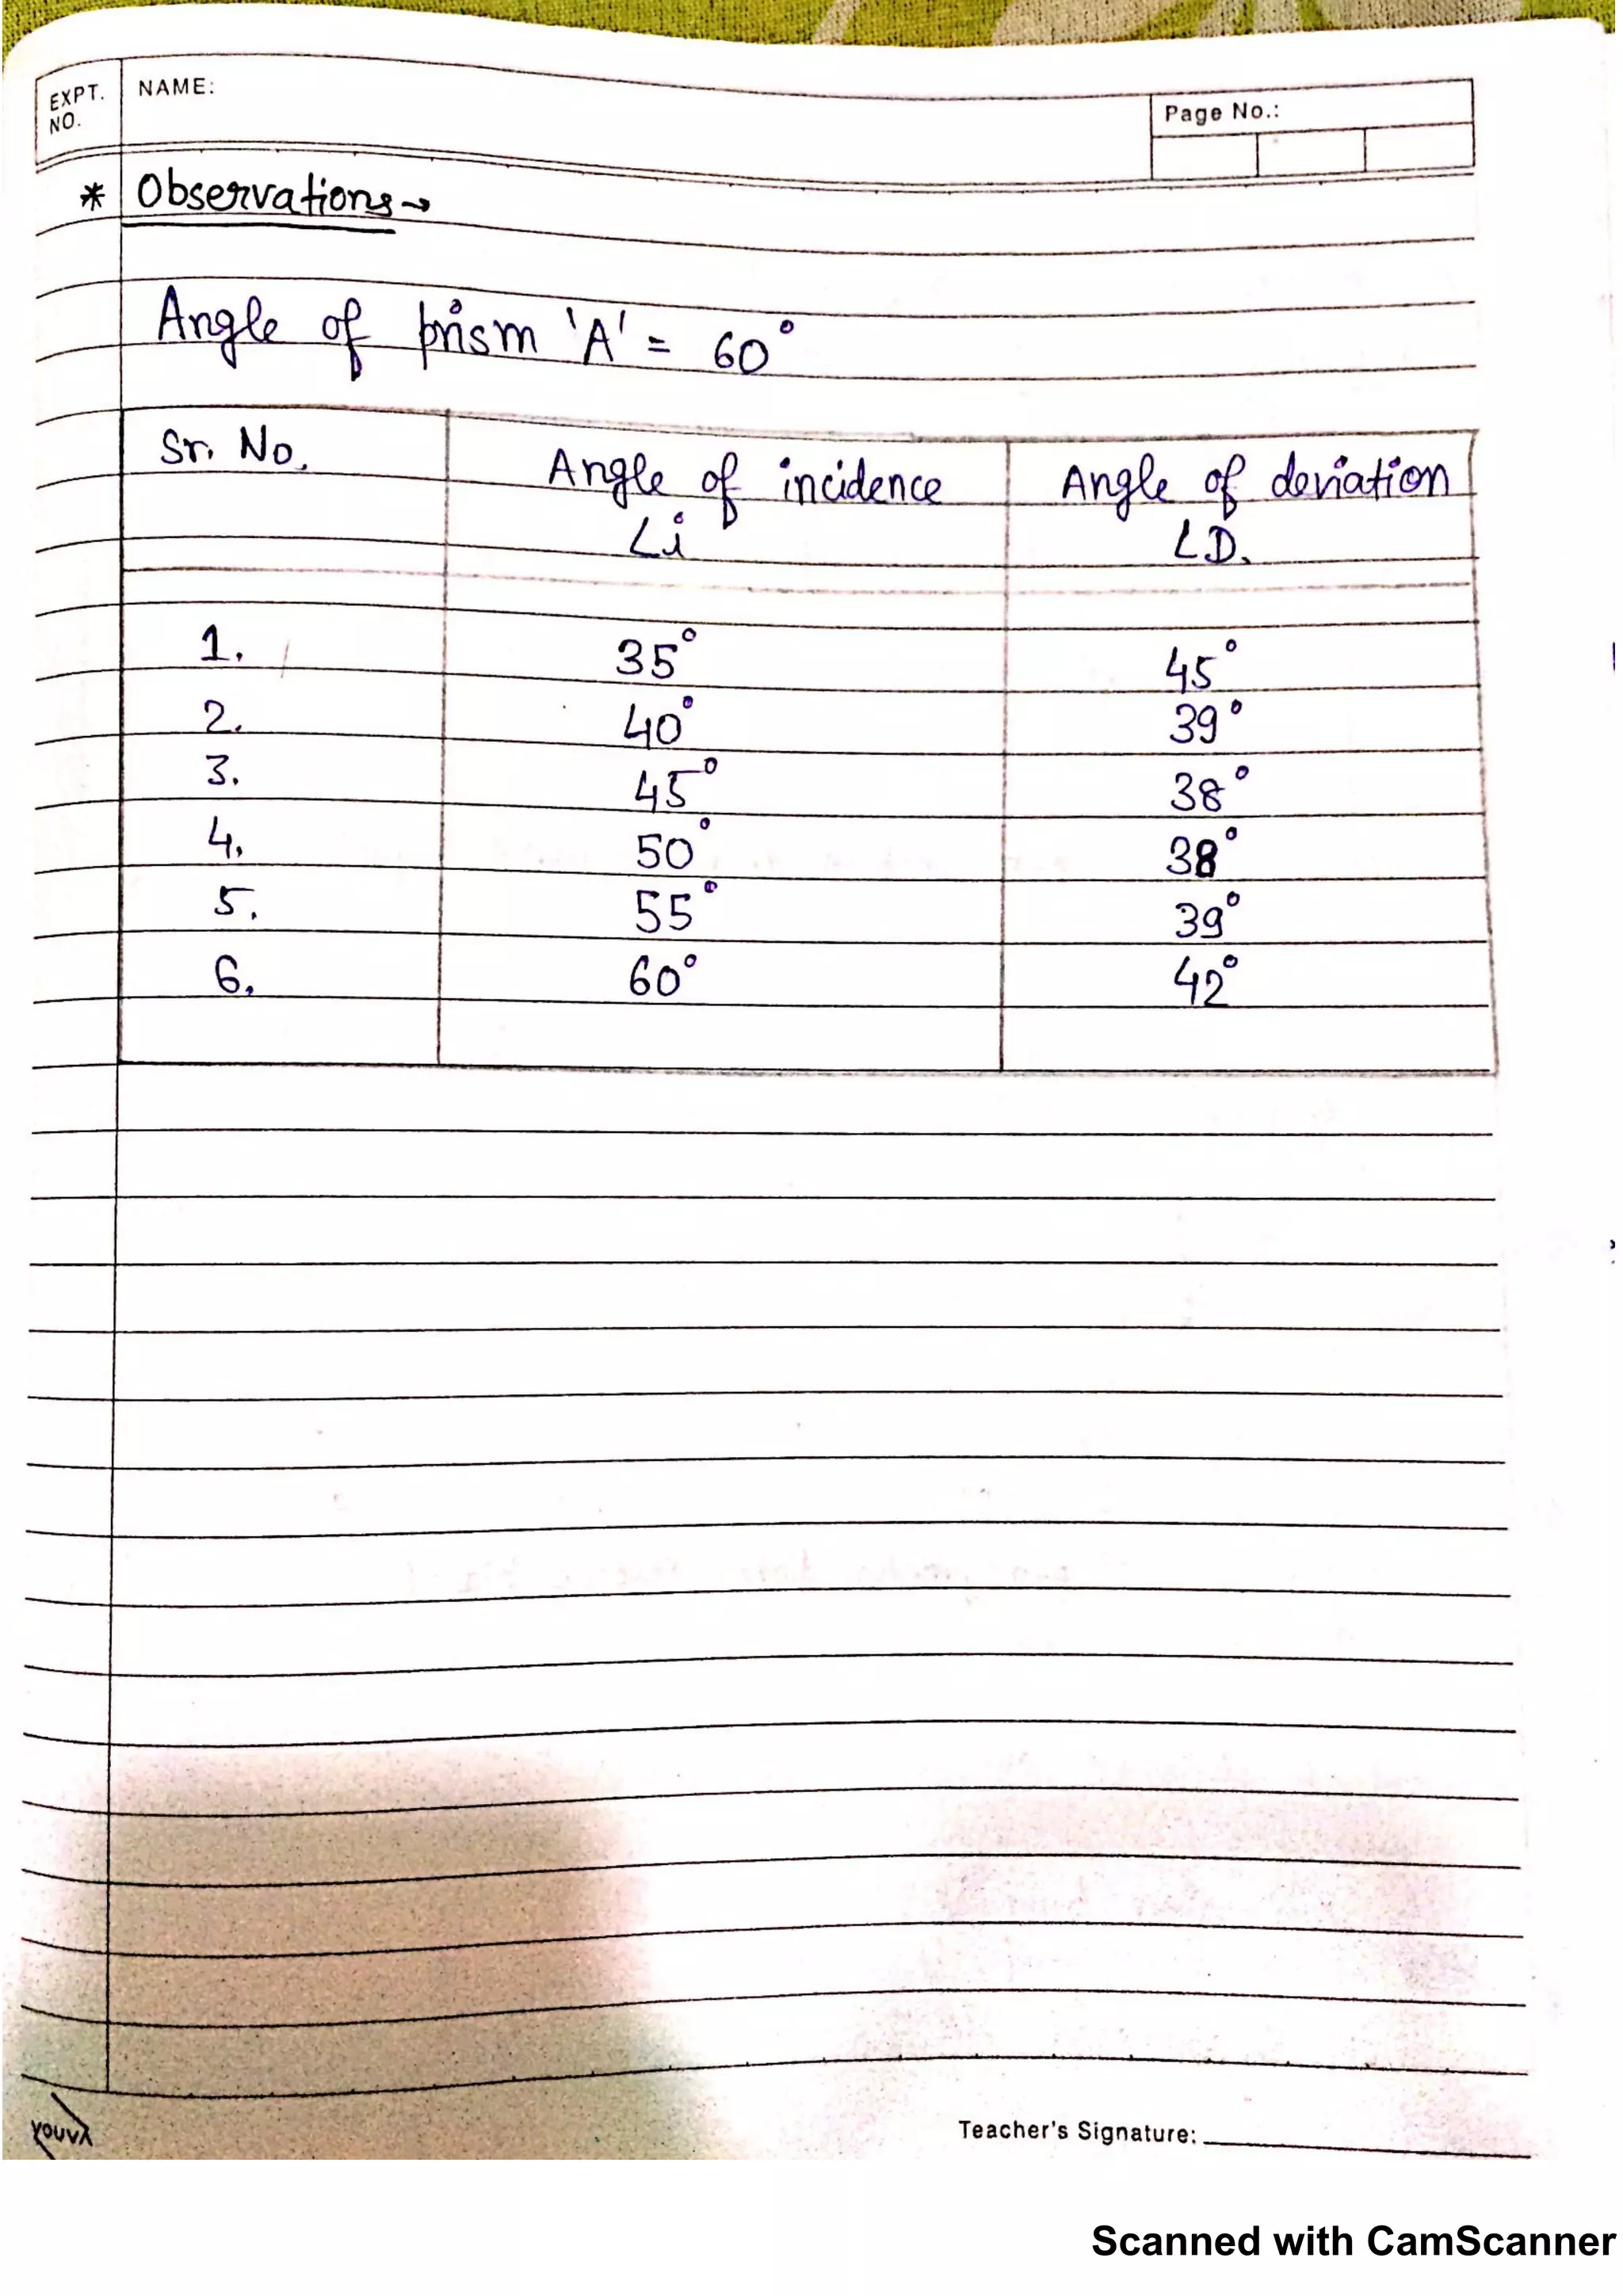 EXPT. NO.
NAME:
Page No.:
* Observations→
Angle of prism 'A' = 60°
Sr. No. Angle of incidence ∠i Angle of deviation ∠D.
1. 35° 45°
2. 40° 39°
3. 45° 38°
4. 50° 38°
5. 55° 39°
6. 60° 42°
YOUVA
Teacher's Signature:
Scanned with CamScanner